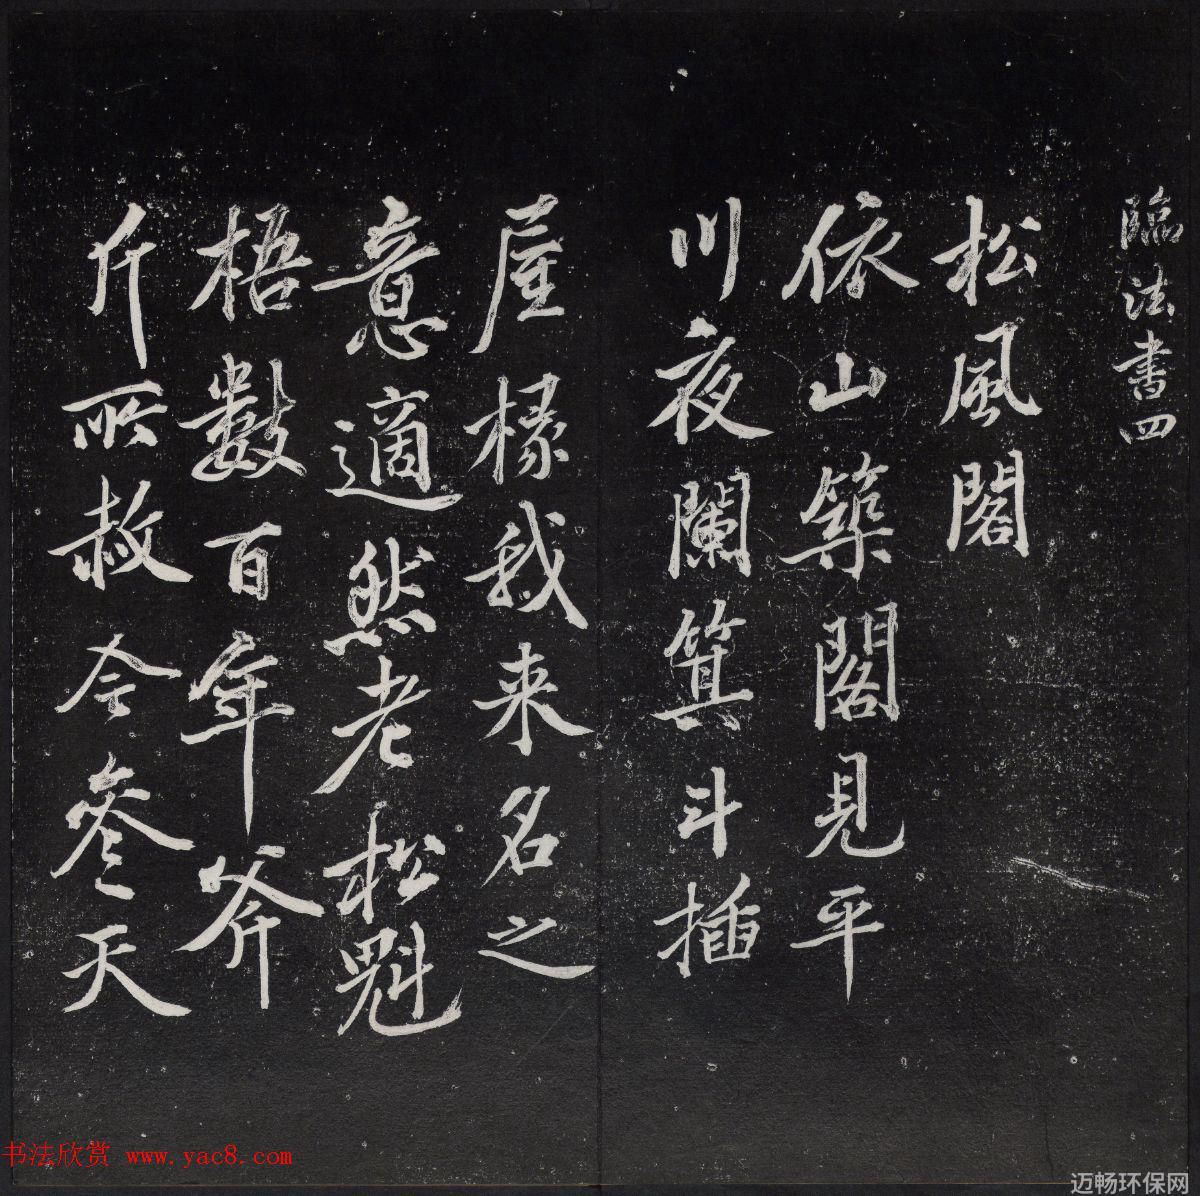 臨法書四
松風閣
依山築閣見平
川夜闌箕斗插
屋椽我来名之
意適然老松魁
梧數百年斧
斤所赦今參天
书法欣赏 www.yac8.com
迈畅环保网